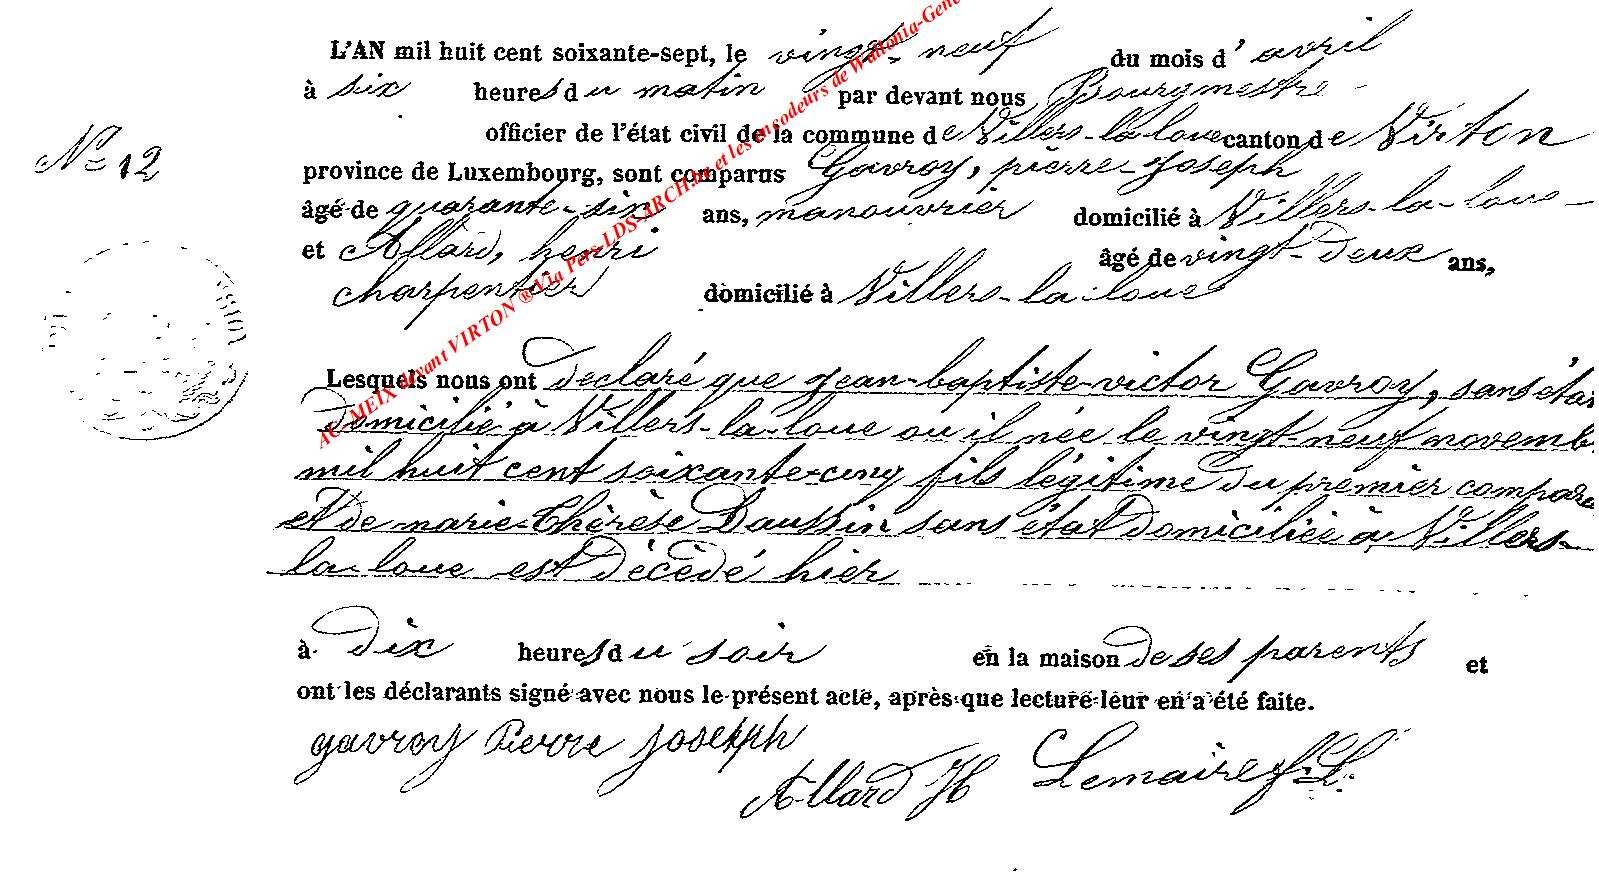 L'AN mil huit cent soixante-sept, le vingt-neuf du mois d' avril
à six heures du matin par devant nous Bourgmestre
officier de l'état civil de la commune de Villers-la-loue canton de Virton
N° 12
province de Luxembourg, sont comparus Gavroy, pierre-Joseph
âgé de quarante-six ans, manouvrier domicilié à Villers-la-loue
et Allard, henri âgé de vingt-deux ans,
charpentier domicilié à Villers-la-loue
Lesquels nous ont declaré que jean-baptiste-victor Gavroy, sans état
domicilié à Villers-la-loue ou il née le vingt-neuf novemb
mil huit cent soixante-cinq fils légitime du premier compare
et de marie-Thérèse Daussin sans état domiciliée à Villers-
la-loue est décédé hier
à dix heures du soir en la maison de ses parents et
ont les déclarants signé avec nous le présent acte, après que lecture leur en a été faite.
gavroy Pierre joseph
Allard H Lemaire
AC MEIX devant VIRTON ® Via Pers-LDS-ARCH.be et les encodeurs de Wallonia-Gene